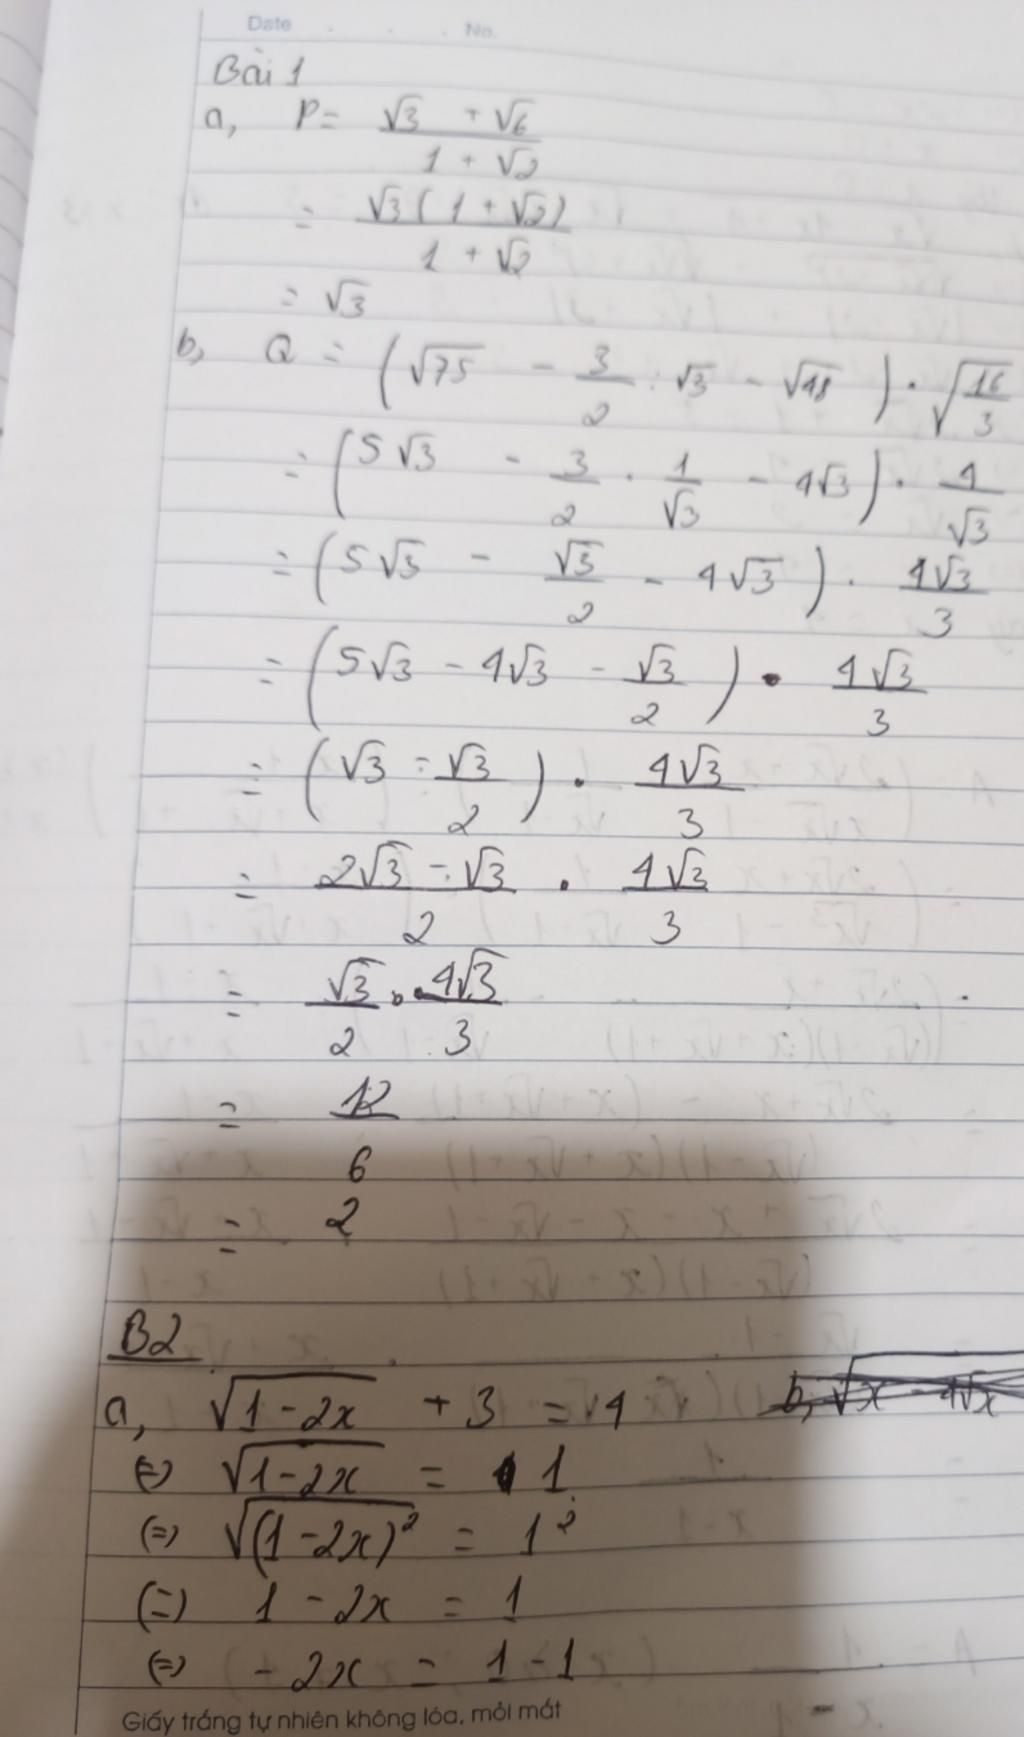 Date . . . No.
Bài 1
a, P = (√3 + √6)/(1 + √2)
= √3(1 + √2)/(1 + √2)
= √3
b, Q = (√75 - 3/2 : √3 - √48) · √(16/3)
= (5√3 - 3/2 · 1/√3 - 4√3) · 4/√3
= (5√3 - √3/2 - 4√3) · 4√3/3
= (5√3 - 4√3 - √3/2) · 4√3/3
= (√3 - √3/2) · 4√3/3
= (2√3 - √3)/2 · 4√3/3
= √3/2 · 4√3/3
= 12/6
= 2
B2
a, √(1-2x) + 3 = 4 b, √x - 4√x
(=) √(1-2x) = 1
(=) √(1-2x)² = 1²
(=) 1 - 2x = 1
(=) - 2x = 1 - 1
Giấy trắng tự nhiên không lóa, mỏi mắt